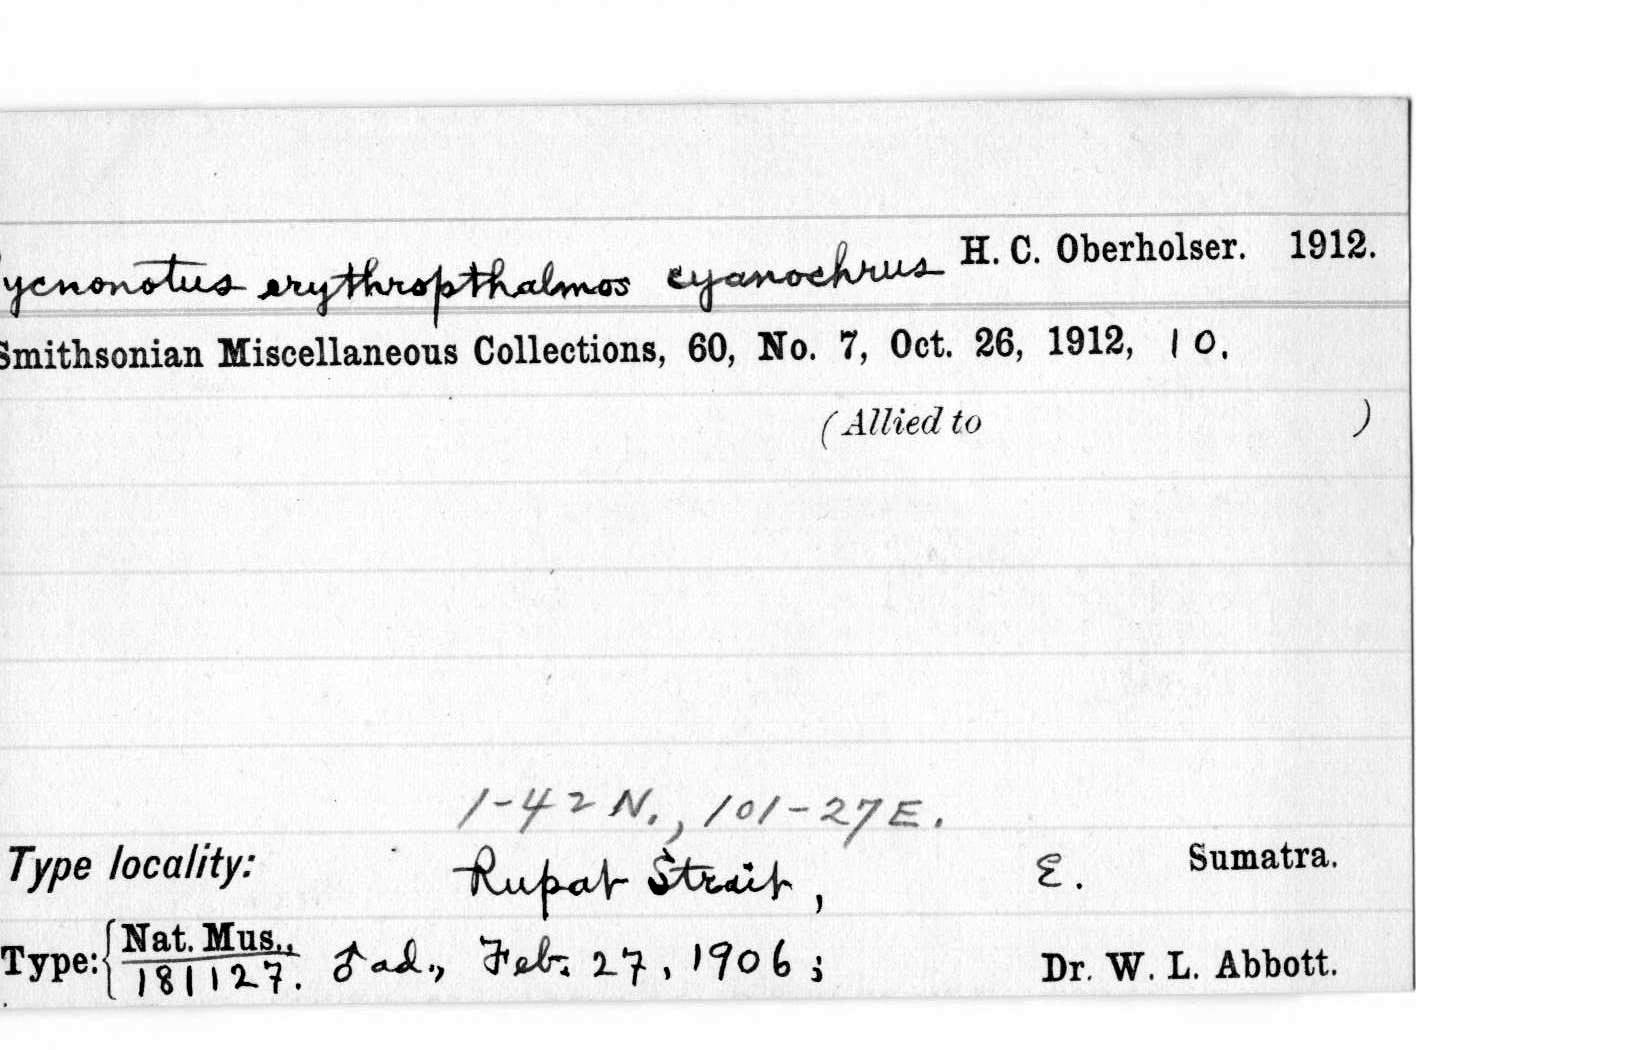 ycnonotus erythropthalmos cyanochrus H. C. Oberholser. 1912.
Smithsonian Miscellaneous Collections, 60, No. 7, Oct. 26, 1912, 10.
(Allied to )
1-42 N., 101-27 E.
Type locality: Rupat Strait, E. Sumatra.
Type: { Nat. Mus., 181127. ♂ ad., Feb. 27, 1906; Dr. W. L. Abbott.